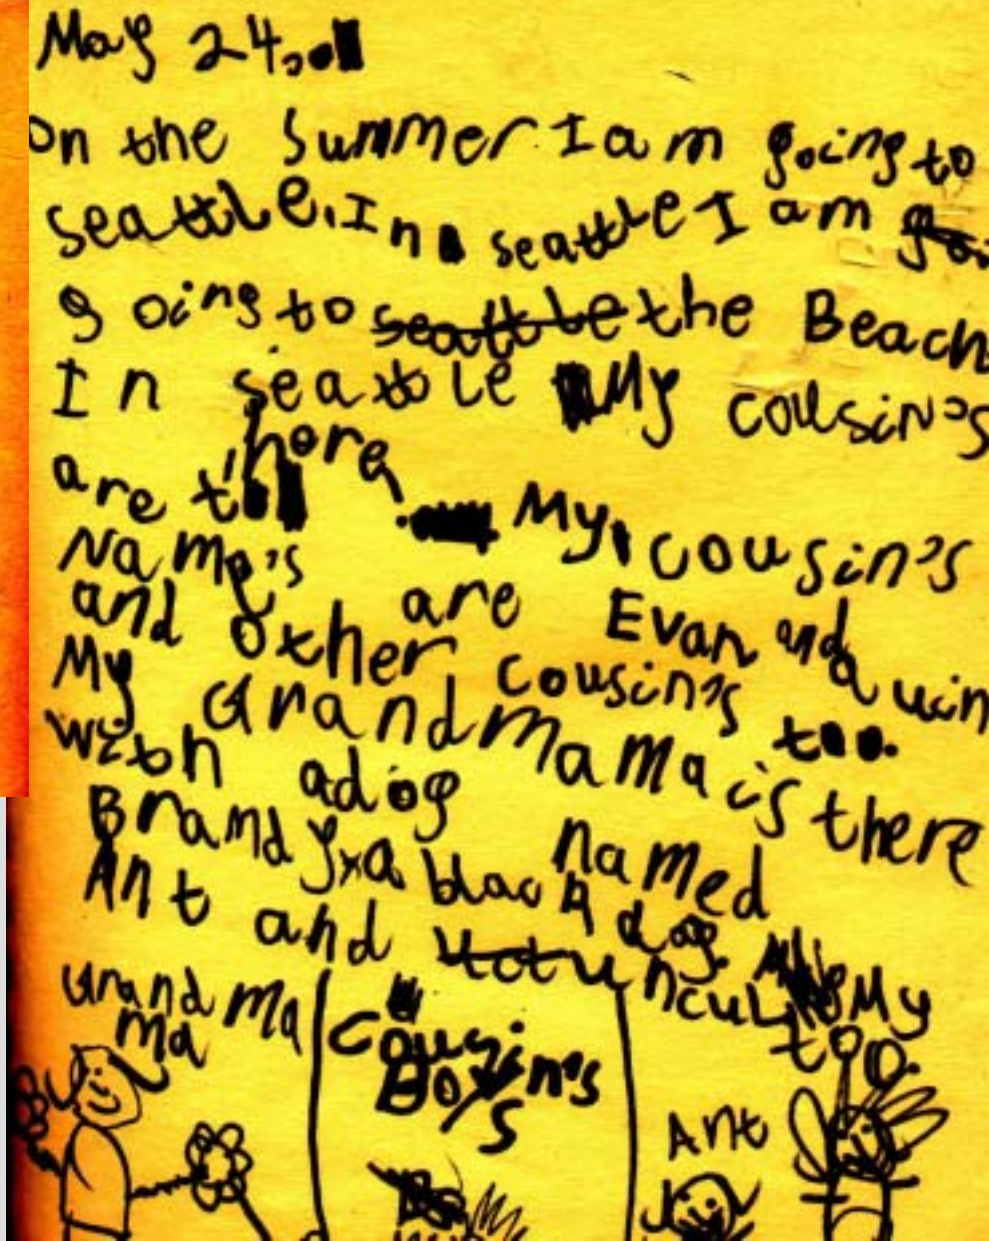 May 24,
on the Summer I am going to
seattle. In seattle I am goi
going to seattle the Beach
In seattle My cousin's
are there. My cousin's
Name's are Evan and Quin
and other cousin's too.
My Grandmama is there
with a dog named
Brandy, a black dog. My
Ant and uncul too.
Grand Ma
Ma
Cousin's
Boy's
Ant